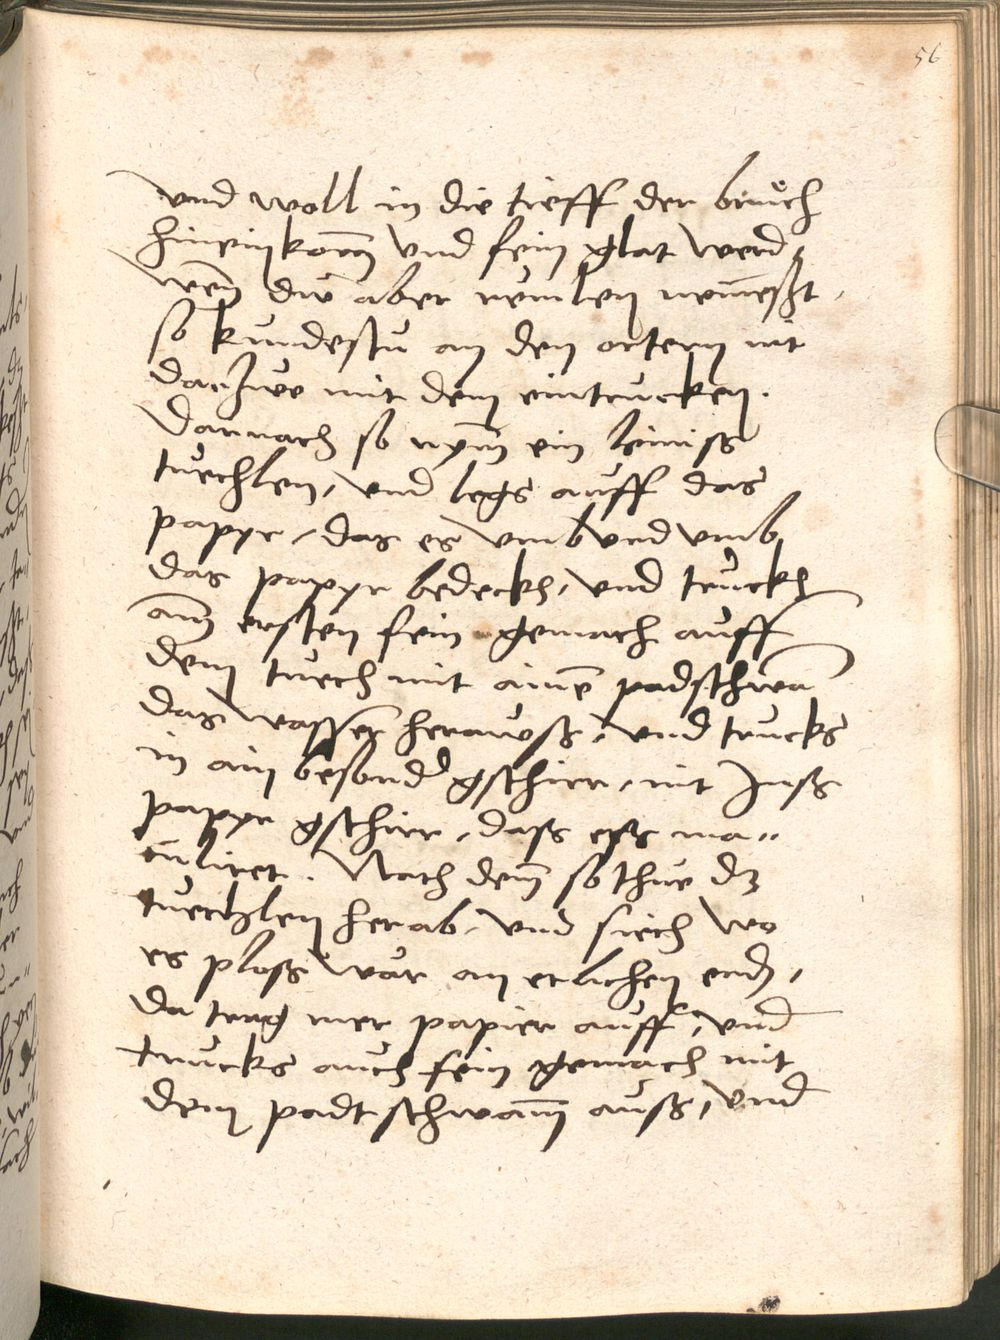 56
vnd woll in die tieff der brüch
hinein komm vnd fein glat werd,
wen̄ du aber
so kundestu an den ortern nit
darzue mit dem eintrucken.
Darnach so nym̄ ein leiniss
tuechlen, vnd legs auff das
papyr, das es vmb vnd vmb
das papyr bedeckh, vnd truckh
am̄ ersten fein gemach auff
dem tuech mit ainē padschwā
das wasser herauss, vnd trucks
in ain besonder gschirr, nit Inss
papyr gschirr, dass ess ma=
culiret. Nach dem̄ so thue dz
tuechlen herab, vnd siech wo
es ploss wär an etlichen endn,
da trag mer papier auff, vnd
trucks auch fein gemach mit
dem padtschwam̄ auss, vnd